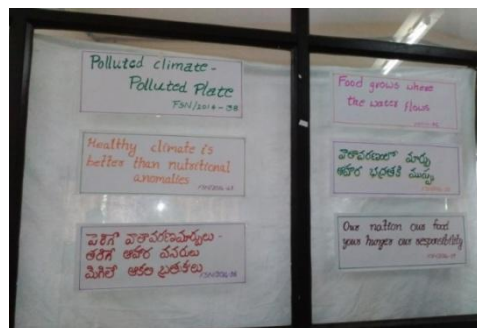 Polluted climate -
Polluted Plate
FSN/2016-38
Healthy climate is
better than nutritional
anomalies
పెరిగే వాతావరణమార్పులు -
తరిగే ఆహార వనరులు
మిగిలే ఆకలి బ్రతుకులు
Food grows where
the water flows
వాతావరణంలో మార్పు
ఆహార భద్రతకే ముప్పు
Our nation our food
your hunger our responsibility